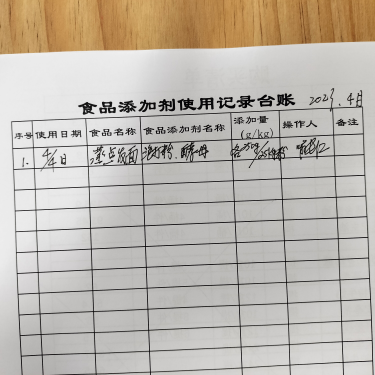 食品添加剂使用记录台账 2023.4月
序号 使用日期 食品名称 食品添加剂名称 添加量(g/kg) 操作人 备注
1. 4/4日 蒸点发面 泡打粉、酵母